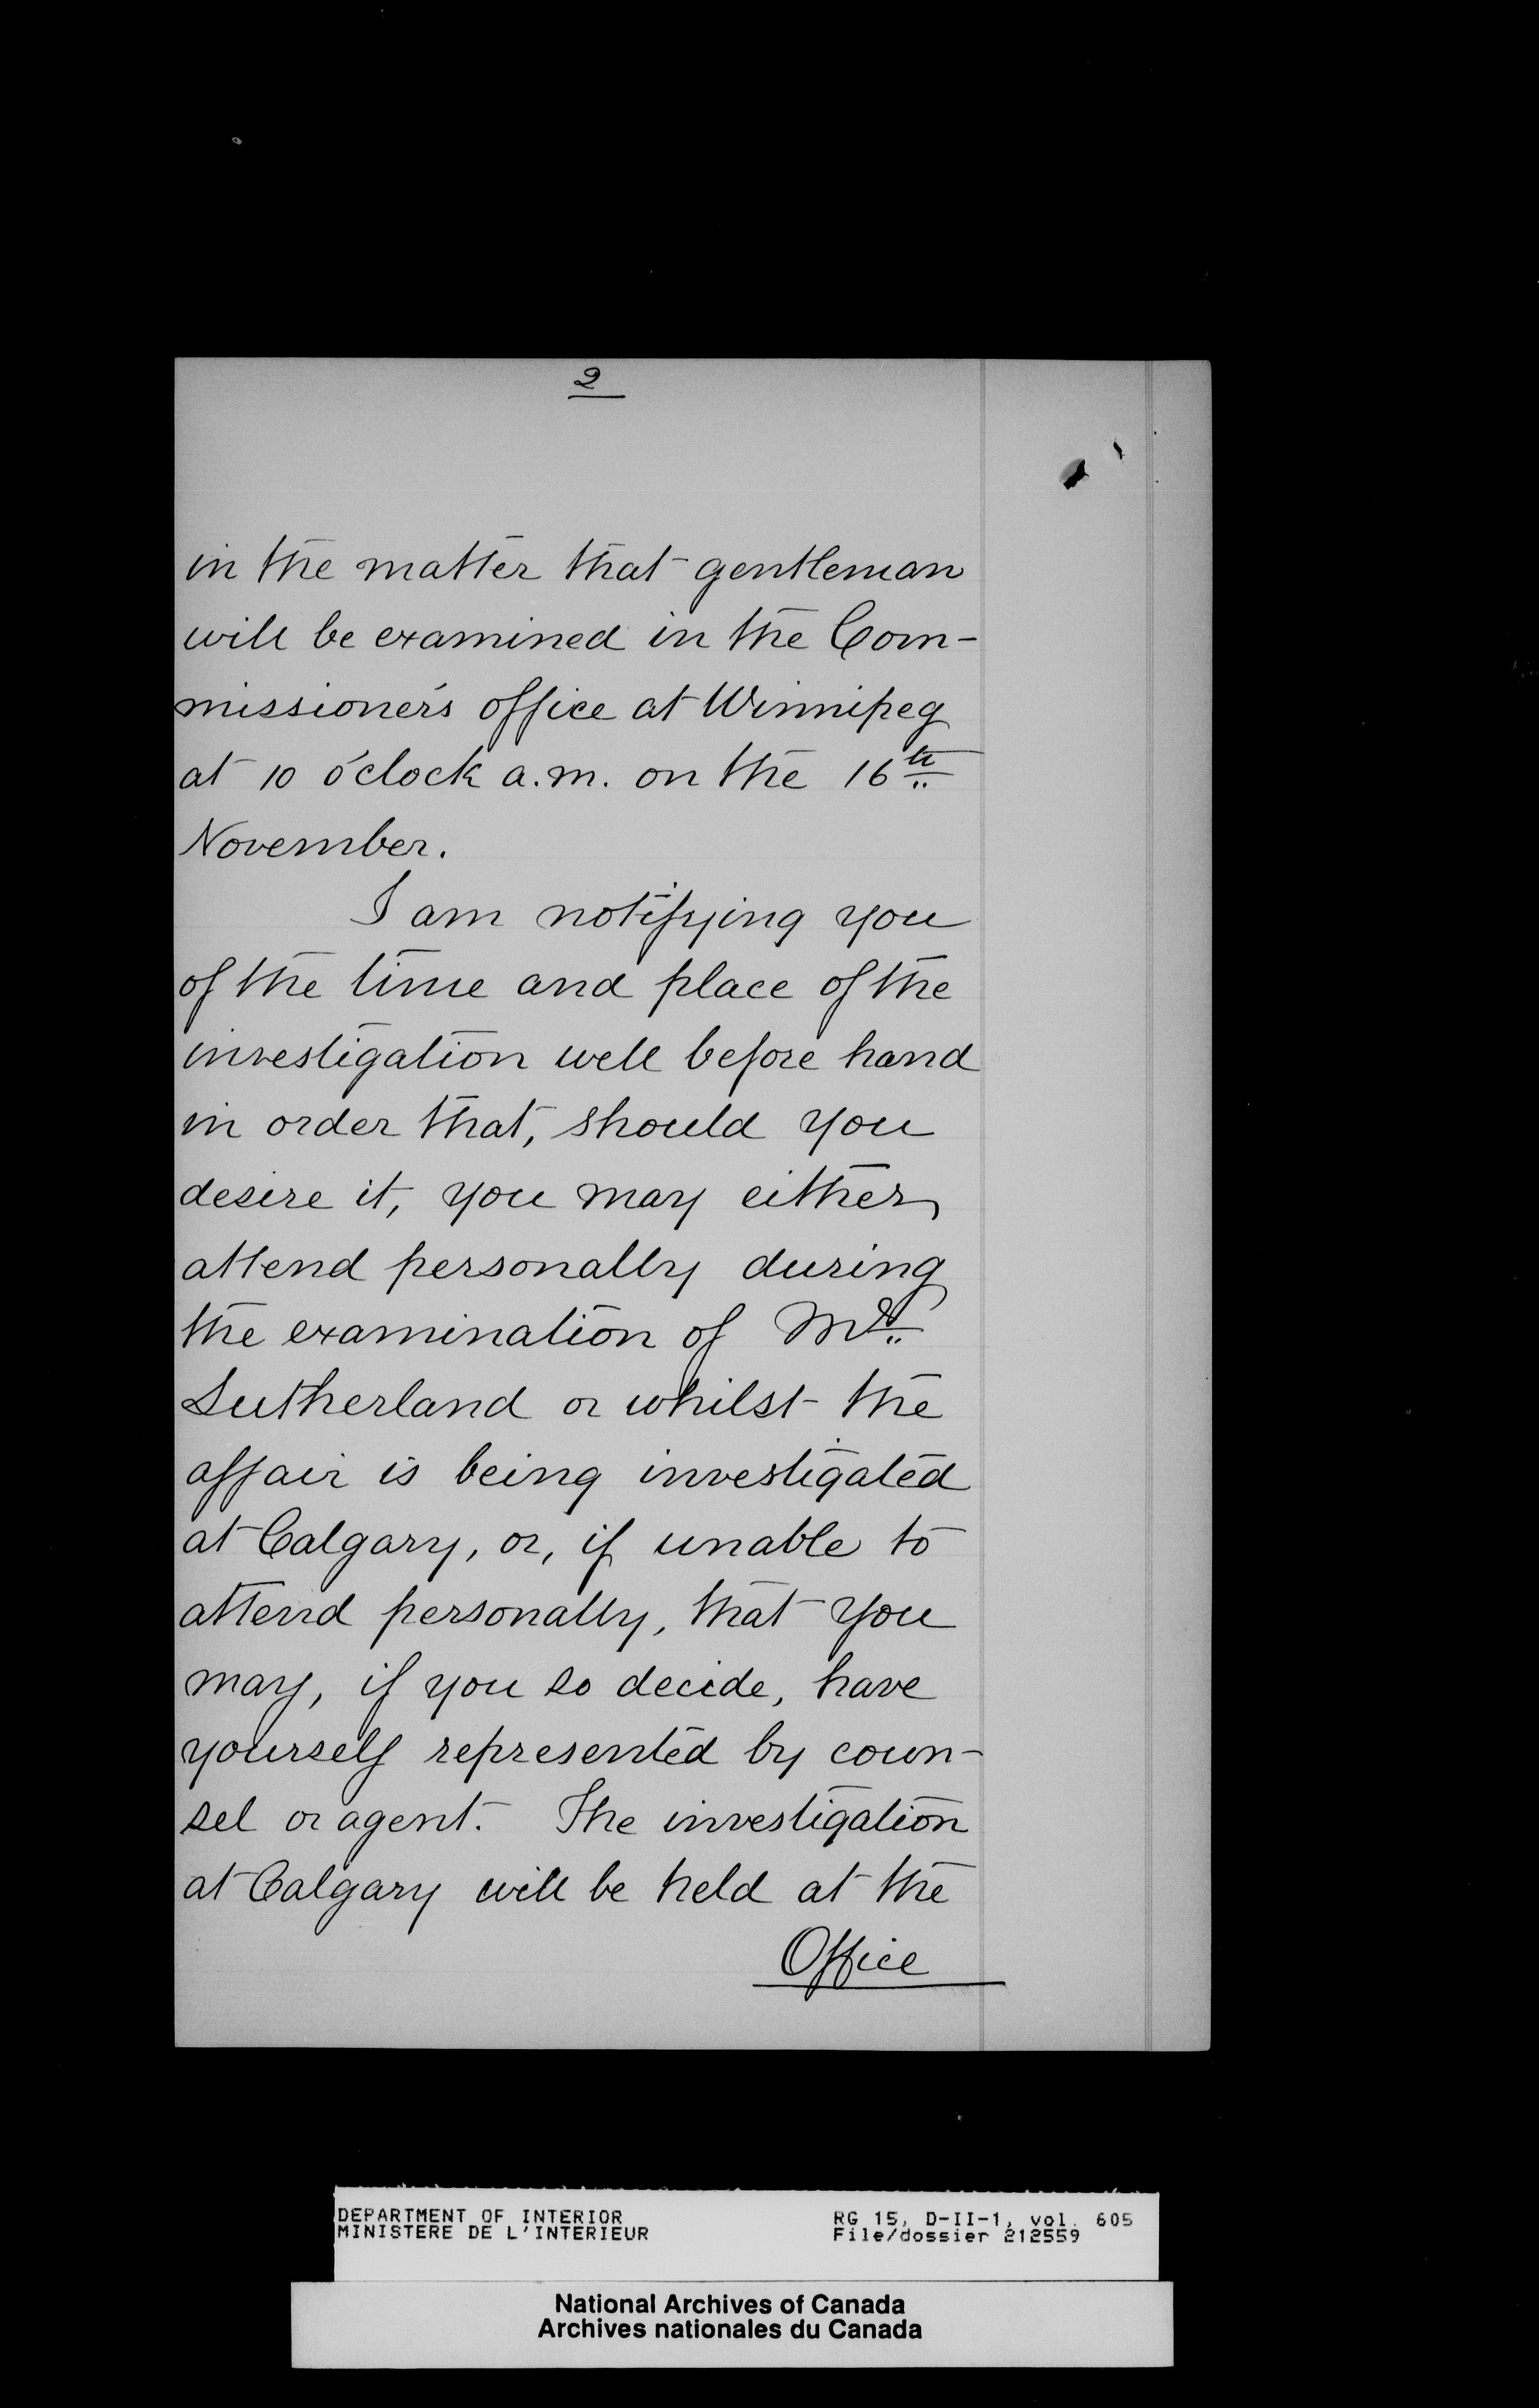 2
in the matter that gentleman
will be examined in the Com-
missioner's office at Winnipeg
at 10 o'clock a.m. on the 16th
November.
I am notifying you
of the time and place of the
investigation well before hand
in order that, should you
desire it, you may either
attend personally during
the examination of Mr.
Sutherland or whilst the
affair is being investigated
at Calgary, or, if unable to
attend personally, that you
may, if you so decide, have
yourself represented by coun-
sel or agent. The investigation
at Calgary will be held at the
Office
DEPARTMENT OF INTERIOR RG 15, D-II-1, vol. 605
MINISTERE DE L'INTERIEUR File/dossier 212559
National Archives of Canada
Archives nationales du Canada